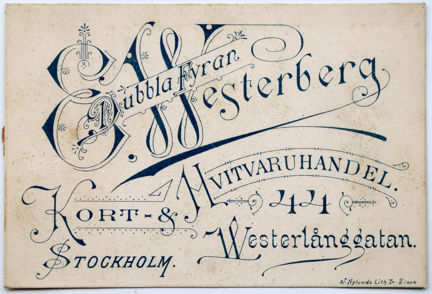 E. Westerberg
Dubbla fyran
Kort- & Hvitvaruhandel.
44
Stockholm.
Westerlånggatan.